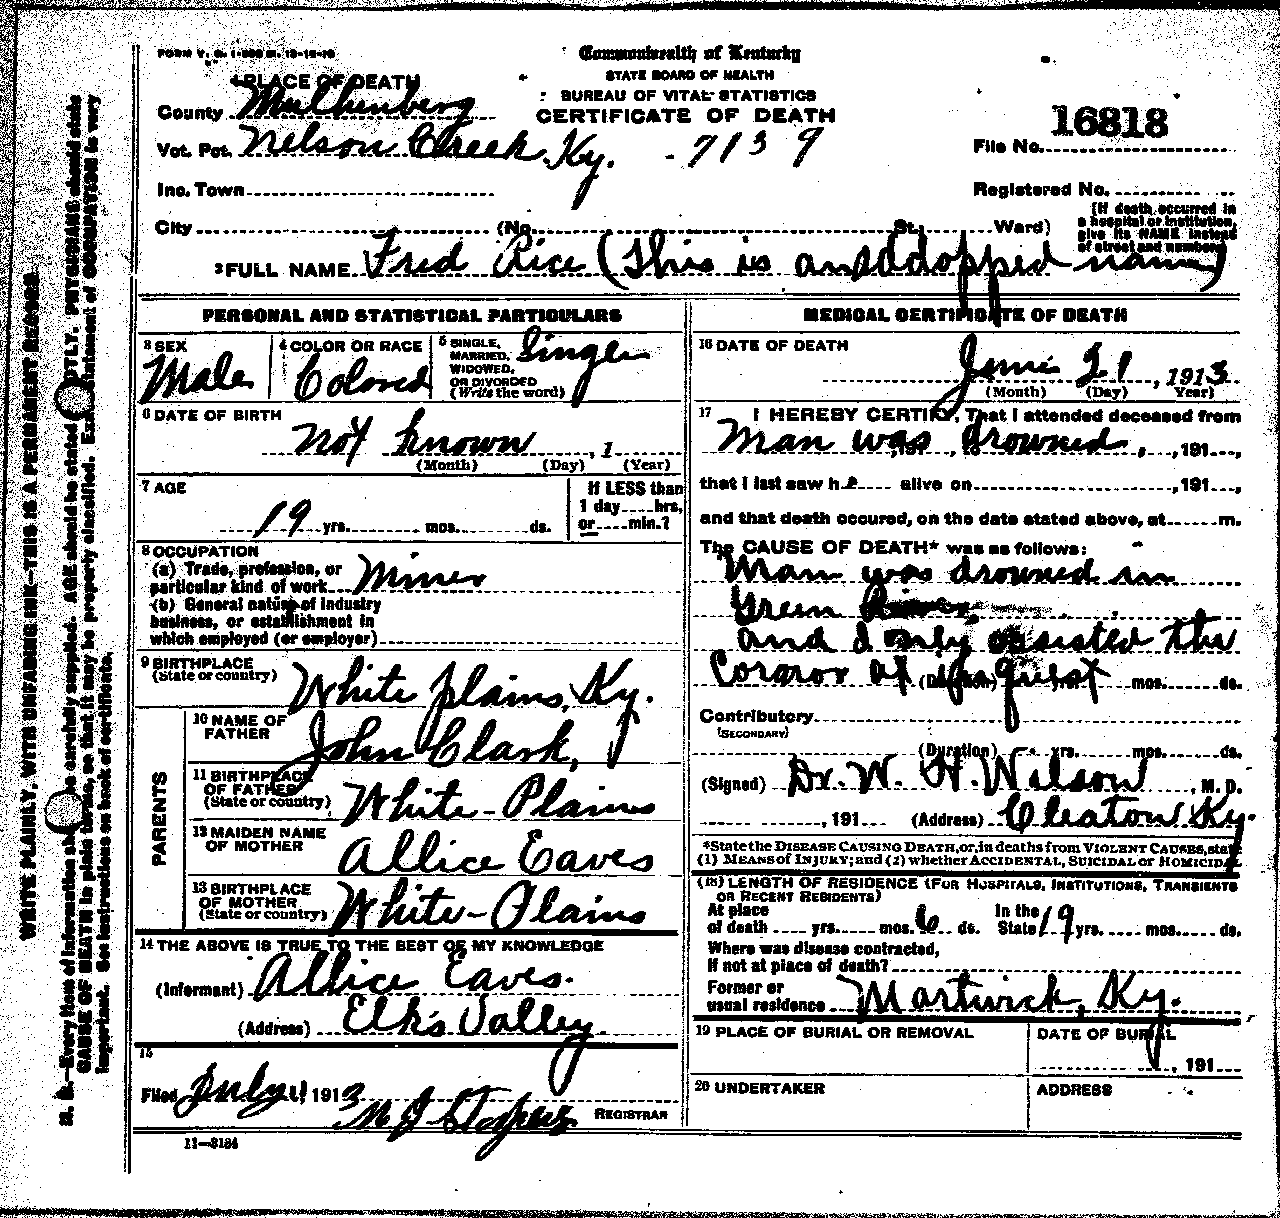 FORM V. S. 1-
Commonwealth of Kentucky
STATE BOARD OF HEALTH
BUREAU OF VITAL STATISTICS
CERTIFICATE OF DEATH
1 PLACE OF DEATH
County Muhlenberg
Vot. Pct. Nelson Creek Ky. - 7139
Inc. Town
City (No. St., Ward)
16818
File No.
Registered No.
(If death occurred in
a hospital or institution,
give its NAME instead
of street and number)
2 FULL NAME Fred Rice (This is an adopped name)
PERSONAL AND STATISTICAL PARTICULARS
3 SEX
Male
4 COLOR OR RACE
Colored
5 SINGLE,
MARRIED,
WIDOWED,
OR DIVORCED
(Write the word)
Single
6 DATE OF BIRTH
not known , 1
(Month) (Day) (Year)
7 AGE
19 yrs. mos. ds.
If LESS than
1 day hrs,
or min.?
8 OCCUPATION
(a) Trade, profession, or
particular kind of work Miner
(b) General nature of industry
business, or establishment in
which employed (or employer)
9 BIRTHPLACE
(State or country) White plains, Ky.
PARENTS
10 NAME OF
FATHER John Clark,
11 BIRTHPLACE
OF FATHER
(State or country) White-Plains
12 MAIDEN NAME
OF MOTHER Allice Eaves
13 BIRTHPLACE
OF MOTHER
(State or country) White-Plains
14 THE ABOVE IS TRUE TO THE BEST OF MY KNOWLEDGE
(Informant) Allice Eaves.
(Address) Elks Valley.
15
Filed July 1913
REGISTRAR
11-3184
MEDICAL CERTIFICATE OF DEATH
16 DATE OF DEATH
June 21, 1913
(Month) (Day) Year)
17 I HEREBY CERTIFY, That I attended deceased from
Man was drowned , 191 ,
that I last saw h alive on , 191 ,
and that death occured, on the date stated above, at m.
The CAUSE OF DEATH* was as follows:
Man was drowned in
Green River
and I only assisted the
Cororor at Inquest
(Duration) yrs. mos. ds.
Contributory
(SECONDARY)
(Duration) yrs. mos. ds.
(Signed) Dr. W. H. Wilson , M. D.
, 191 (Address) Cleaton Ky.
*State the DISEASE CAUSING DEATH, or, in deaths from VIOLENT CAUSES, state
(1) MEANS of INJURY; and (2) whether ACCIDENTAL, SUICIDAL or HOMICIDAL
(18) LENGTH OF RESIDENCE (FOR HOSPITALS, INSTITUTIONS, TRANSIENTS
OR RECENT RESIDENTS)
At place
of death yrs. mos. 6 ds.
In the
State 19 yrs. mos. ds.
Where was disease contracted,
If not at place of death?
Former or
usual residence Martwick, Ky.
19 PLACE OF BURIAL OR REMOVAL
DATE OF BURIAL
, 191
20 UNDERTAKER
ADDRESS
WRITE PLAINLY, WITH UNFADING INK—THIS IS A PERMANENT RECORD
N. B.—Every item of information should be carefully supplied. AGE should be stated EXACTLY. PHYSICIANS should state
CAUSE OF DEATH in plain terms, so that it may be properly classified. Exact statement of OCCUPATION is very
important. See instructions on back of certificate.